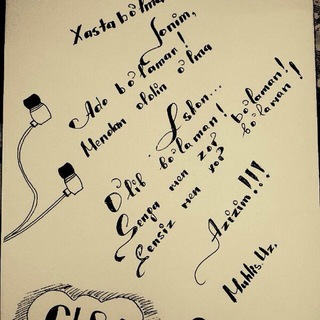 Xasta bo'lma,
Jonim,
Ado bo'laman!
Mendan oldin o'lma
Ishon...
O'lib bo'laman!
Senga men zor bo'laman!
Sensiz men yo? bo'laman!
Azizim!!!
Muhlis.Uz,